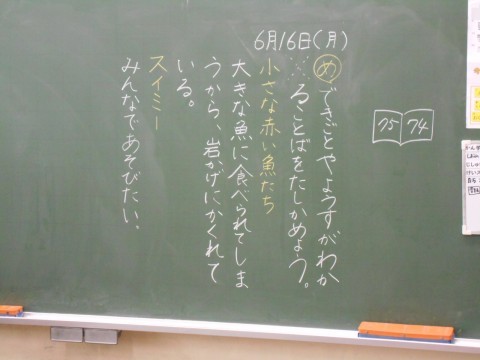 6月16日(月)
75 74
め できごとやようすがわか
ることばをたしかめよう。
小さな赤い魚たち
大きな魚に食べられてしま
うから、岩かげにかくれて
いる。
スイミー
みんなであそびたい。